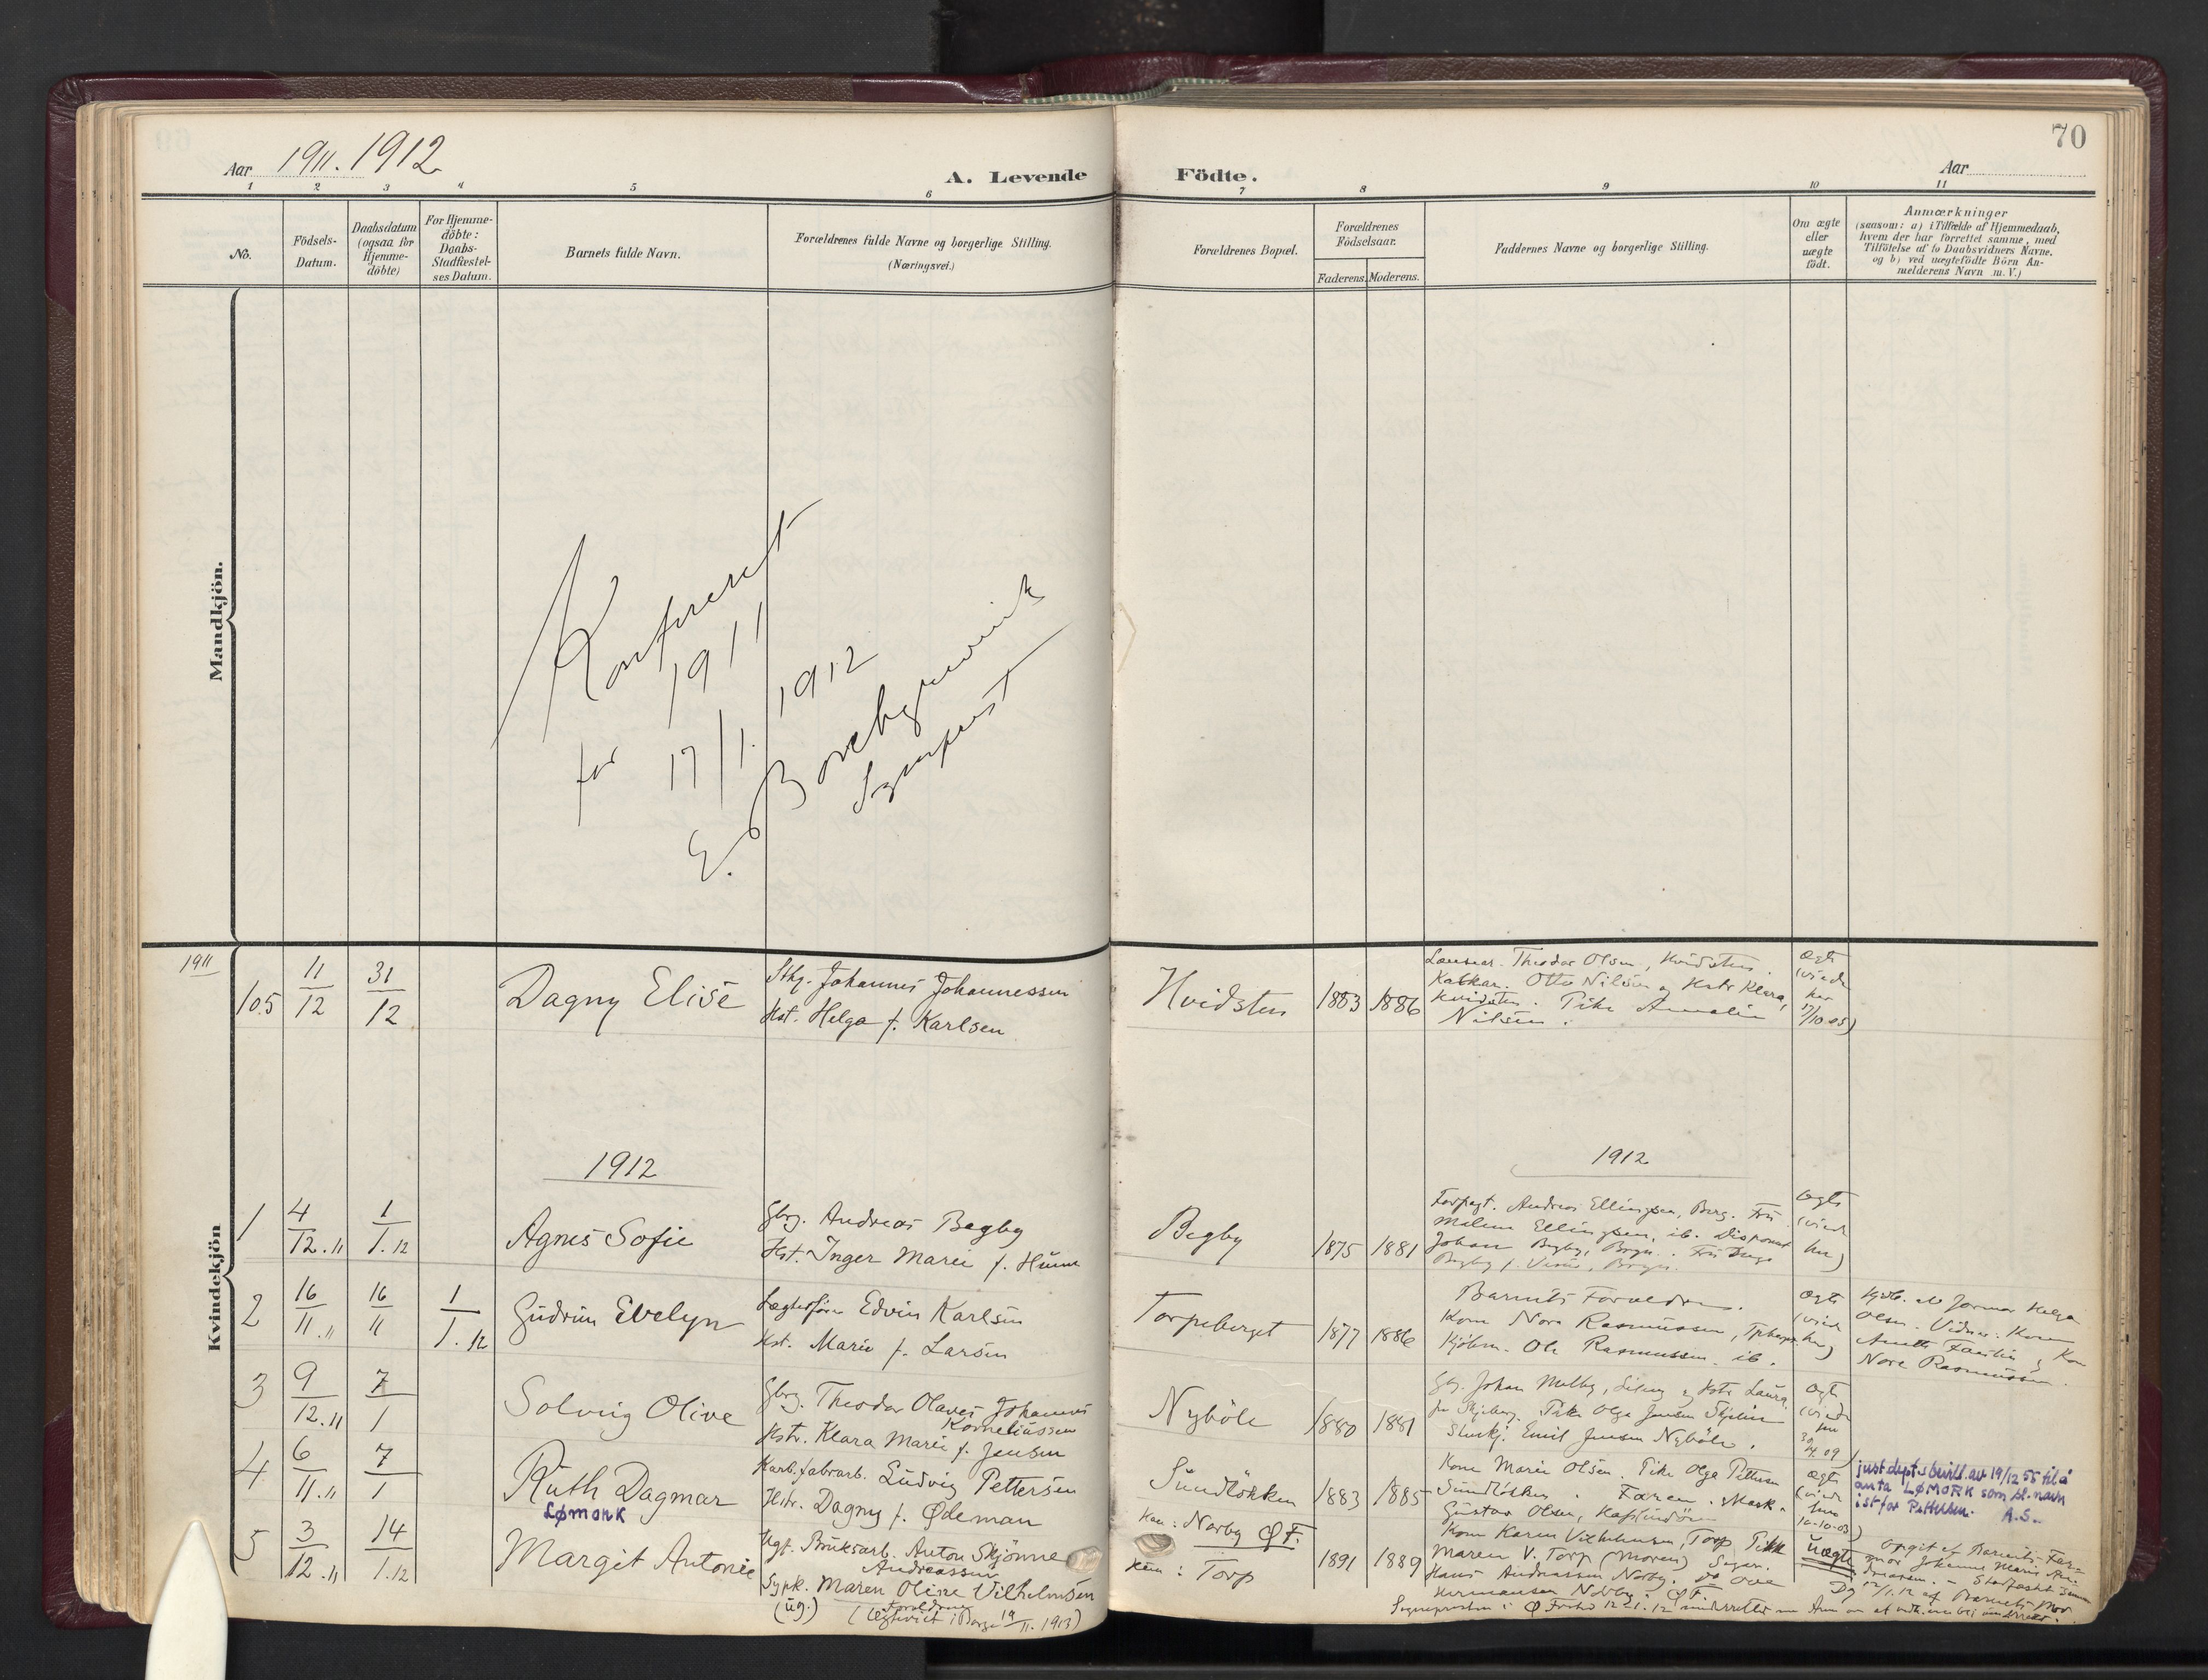 70
Aar 1911. 1912
A. Levende Födte.
Aar
1 2 3 4 5 6 7 8 9 10 11
No.
Födsels-
Datum.
Daabsdatum
(ogsaa for
Hjemme-
döbte)
For Hjemme-
döbte:
Daabs-
Stadfæstel-
ses Datum.
Barnets fulde Navn.
Forældrenes fulde Navne og borgerlige Stilling.
(Næringsvei.)
Forældrenes Bopæl.
Forældrenes
Födselsaar.
Faderens. Moderens.
Faddernes Navne og borgerlige Stilling.
Om ægte
eller
uægte
födt.
Anmærkninger
(saasom: a) i Tilfælde af Hjemmedaab,
hvem der har forrettet samme, med
Tilföielse af to Daabsvidners Navne,
og b) ved uægtefödte Börn An-
melderens Navn m. V.)
Mandkjön.
Konfereret
for 1911
17/1. 1912
E. Borchgrevink
Sogneprest
Kvindekjön
1911
105
11/12
31/12
Dagny Elise
Johannes Johannessen
Hst. Helga f. Karlsen
Hvidsten
1883 1886
Theodor Olsen, Hvidsten.
Otto Nilsen og Hstr Klara,
Hvidsten. Pike Amalie
Nilsen.
ægte
(viede
her
17/10.05)
1912
1912
1
4/12.11
1/1.12
Agnes Sofie
Gbrg. Andreas Begby
Hst. Inger Marie f. Hunn
Begby
1875 1881
Forpagt. Andreas Ellingsen, Borg. Fru
Milena Ellingsen, ib. Disponent
Johan Begby, Borgen. Fru
Begby f.
ægte
(viede
her)
2
16/11.11
16/11
1/1.12
Gudrun Evelyn
Edvin Karlsen
Hst. Marie f. Larsen
Torpeberget
1877 1886
Barnets Forældre.
Kone Nora Rasmussen,
Kjöbm. Ole Rasmussen ib.
ægte
(viede
her)
Hjdb. af Jormor Helga
Olsen. Vidner: Kone
Kone
Nora Rasmussen.
3
9/12.11
7/1
Solveig Olive
Gbrg. Theodor Olaves Johannes
Korneliussen
Hstr. Klara Marie f. Jensen
Nyböle
1880 1881
Gbr. Johan Melby, og Hstr Laura,
Pike Olga Jensen
Emil Jensen Nyböle.
ægte
(viede
her
30/4.09)
4
6/11.11
7/1
Ruth Dagmar
LØMORK
Karb.fabrarb. Ludvig Pettersen
Hstr. Dagny f. Ødeman
Sundlökken
1883 1885
Kone Marie Olsen. Pike Olga Pettersen
Sundlökken. Faren.
Gustav Olsen,
ægte
(viede
10-10-03)
just.dept.s bevill. av 19/12 55 til å
anta LØMORK som sl.navn
istfor Pettersen. A.S.
5
3/12.11
14/1.12
Margit Antonie
Ugf. Bruksarb. Anton Skjönne
Andreassen
Sypk. Maren Oline Vilhelmsen
(ug.)
(Forældrene
ægteviet i Borge 19/11. 1913)
Han: Norby Ø F.
Hun: Torp
1891 1889
Kone Karen Vilhelmsen, Torp Pike
Maren V. Torp (Moren)
Hans Andreassen Norby.
Hermansen Norby Ø F.
Uægte
Opgit af Barnets Far-
mor Johanne Marie An-
dreassen. - Stadfæstet
17/1.12 af Barnets Mor